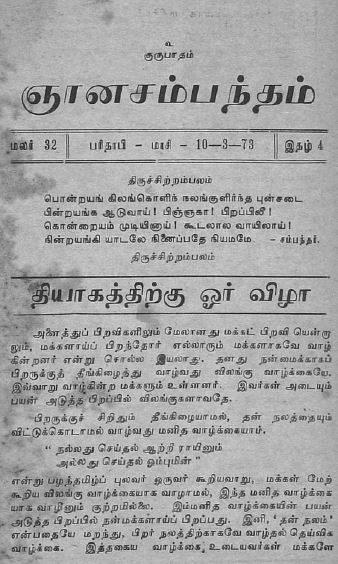 உ
குருபாதம்
ஞானசம்பந்தம்
மலர் 32 பரிதாபி – மாசி – 10—3—73 இதழ் 4
திருச்சிற்றம்பலம்
பொன்றயங் கிலங்கொளிந் நலங்குளிர்ந்த புன்சடை
பின்றயங்க ஆடுவாய்! பிஞ்ஞகா! பிறப்பிலீ!
கொன்றையம் முடியினாய்! கூடலால வாயிலாய்!
நின்றயங்கி யாடலே நினைப்பதே நியமமே. – சம்பந்தர்.
திருச்சிற்றம்பலம்
தியாகத்திற்கு ஓர் விழா
அனைத்துப் பிறவிகளிலும் மேலானது மக்கட் பிறவி யென்றா
லும், மக்களாய்ப் பிறந்தோர் எல்லாரும் மக்களாகவே வாழ்
கின்றனர் என்று சொல்ல இயலாது. தனது நன்மைக்காகப்
பிறருக்குத் தீங்கிழைத்து வாழ்வது விலங்கு வாழ்க்கையே.
இவ்வாறு வாழ்கின்ற மக்களும் உள்ளனர். இவர்கள் அடையும்
பயன் அடுத்த பிறப்பில் விலங்குகளாவதே.
பிறருக்குச் சிறிதும் தீங்கிழையாமல், தன் நலத்தையும்
விட்டுக்கொடாமல் வாழ்வது மனித வாழ்க்கையாம்.
“ நல்லது செய்தல் ஆற்றி ராயினும்
அல்லது செய்தல் ஓம்புமின் ”
என்று பழந்தமிழ்ப் புலவர் ஒருவர் கூறியவாறு, மக்கள் மேற்
கூறிய விலங்கு வாழ்க்கையாக வாழாமல், இந்த மனித வாழ்க்கை
யாக வாழினும் குற்றமில்லை. இம்மனித வாழ்க்கையின் பயன்
அடுத்த பிறப்பில் நன்மக்களாய்ப் பிறப்பது. இனி, ‘தன் நலம்’
என்பதையே மறந்து, பிறர் நலத்திற்காகவே வாழ்தல் தெய்விக
வாழ்க்கை. இத்தகைய வாழ்க்கை உடையவர்கள் மக்களே